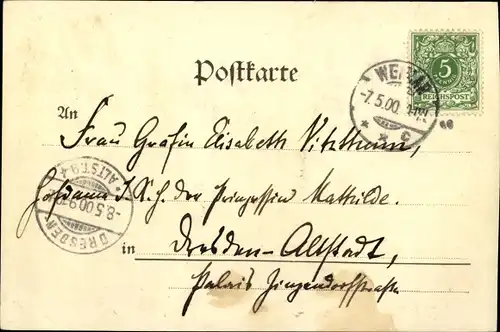 Postkarte
5
REICHSPOST
WEIMAR
-7.5.00.
* * c
An
Frau Gräfin Elisabeth Vitzthum,
Hofdame I. K. H. der Prinzessin Mathilde.
in
Dresden-Altstadt,
Palais Zinzendorfstraße
DRESDEN
-8.5.00
* ALTST. 9.